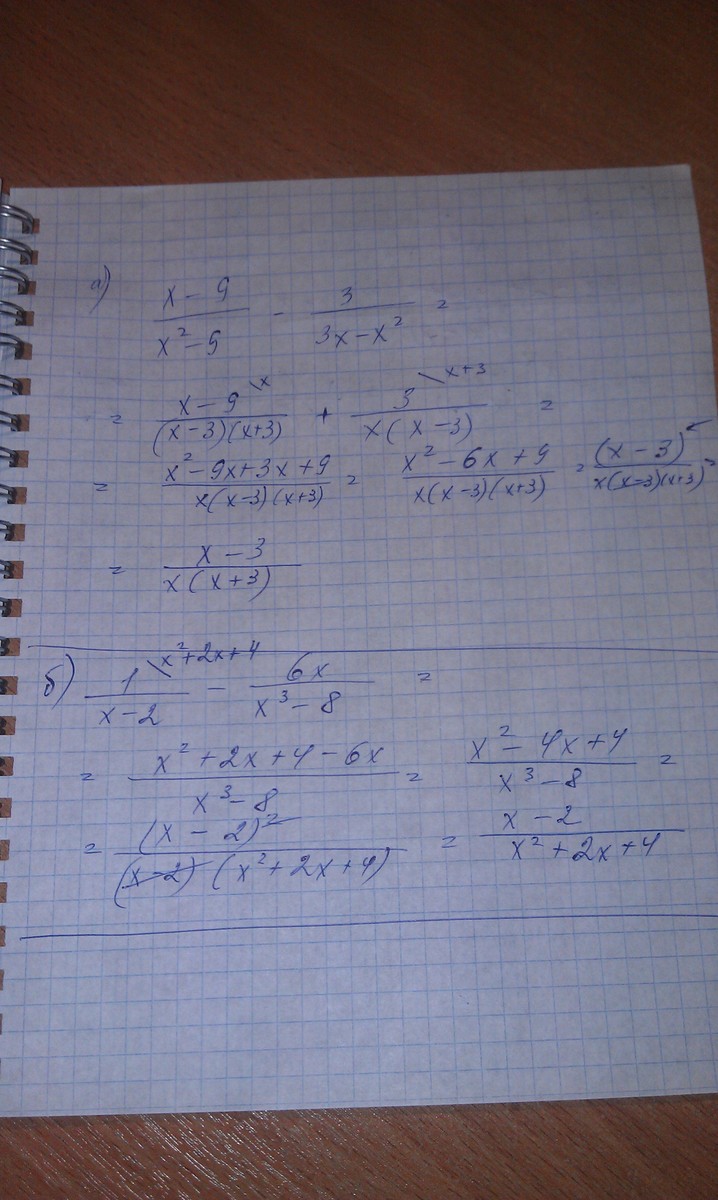 а) (x - 9)/(x² - 9) - 3/(3x - x²) =
= (x - 9)\x/((x - 3)(x+3)) + 3\x+3/(x(x - 3)) =
= (x² - 9x + 3x + 9)/(x(x-3)(x+3)) = (x² - 6x + 9)/(x(x-3)(x+3)) = (x - 3)²/(x(x-3)(x+3)) =
= (x - 3)/(x(x+3))
б) 1\x²+2x+4/(x - 2) - 6x/(x³ - 8) =
= (x² + 2x + 4 - 6x)/(x³ - 8) = (x² - 4x + 4)/(x³ - 8) =
= (x - 2)²/((x-2)(x² + 2x + 4)) = (x - 2)/(x² + 2x + 4)